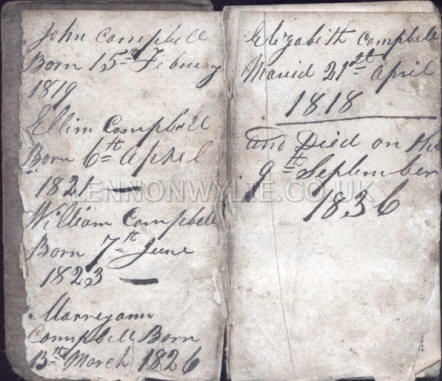 John Campbell
Born 15th Febuary
1819
Ellin Campbell
Born 6th Aphel
1821 —
William Campbell
Born 7th June
1823 —
Marreyann
Campbell Born
13th March 1826
Elizabeth Campbell
Maried 21st April
1818
and Died on the
9th September
1836
LENNONWYLIE.CO.UK